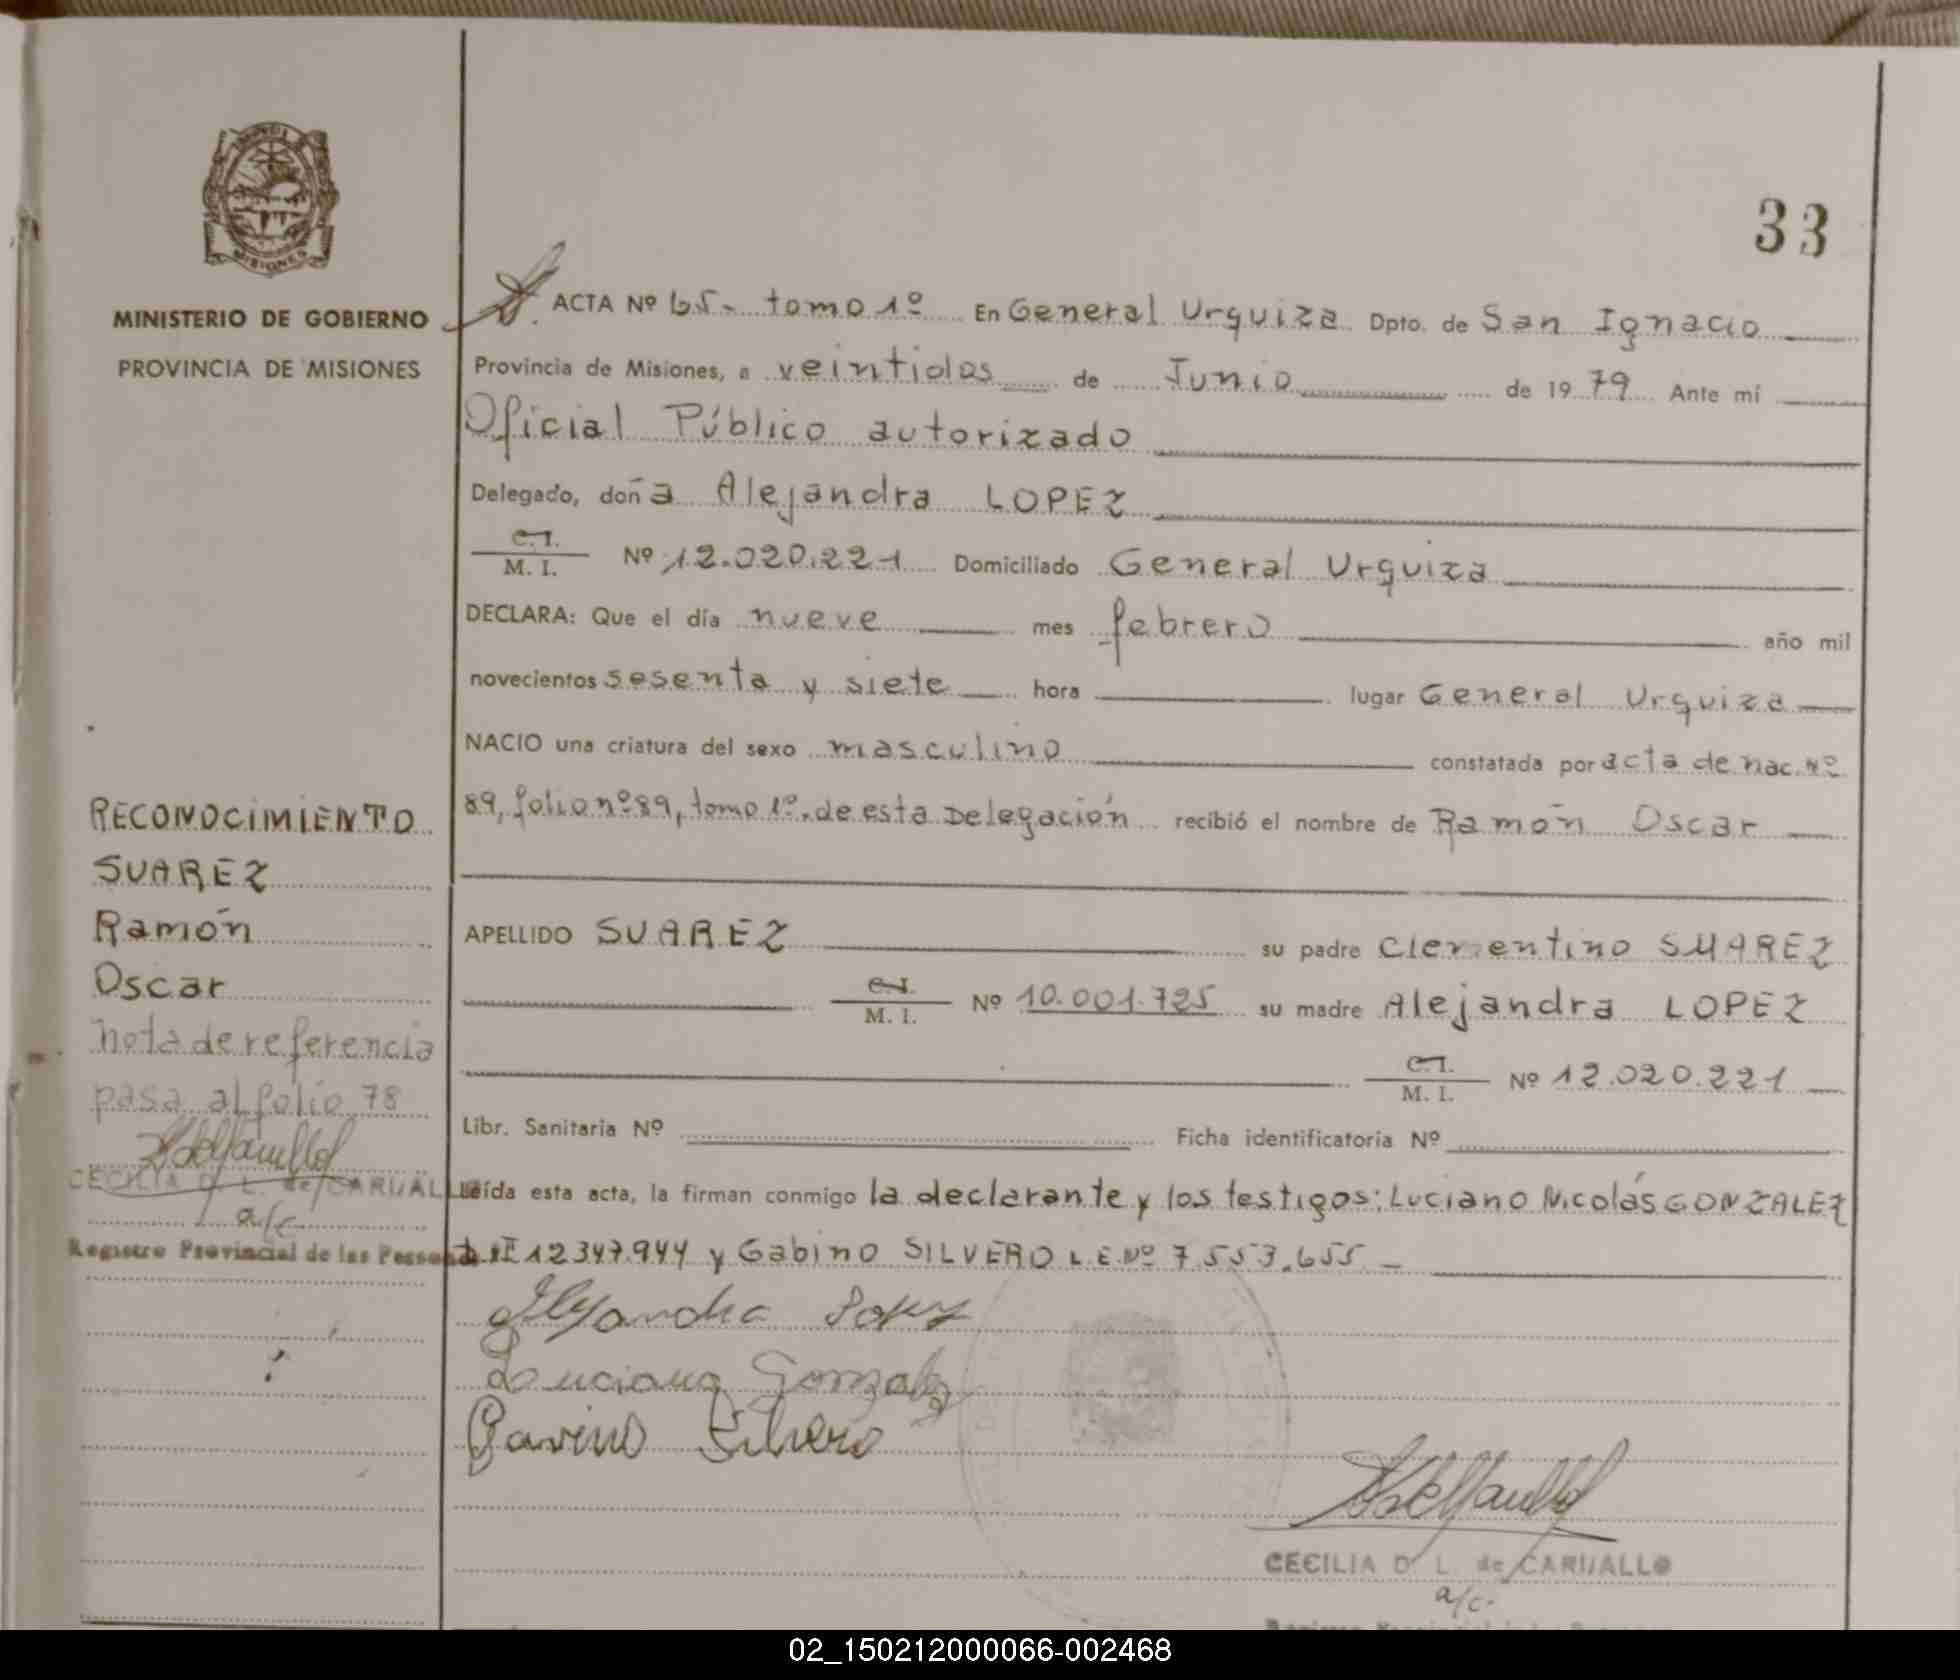 33
MISIONES
MINISTERIO DE GOBIERNO
PROVINCIA DE MISIONES
ACTA Nº 65- tomo 1º En General Urquiza Dpto. de San Ignacio
Provincia de Misiones, a veintidos de Junio de 1979 Ante mí
Oficial Público autorizado
Delegado, doña Alejandra LOPEZ
C.I.
M. I. Nº 12.020.221 Domiciliado General Urquiza
DECLARA: Que el día nueve mes febrero año mil
novecientos sesenta y siete hora lugar General Urquiza
NACIO una criatura del sexo masculino constatada por acta de nac. Nº
89, folio nº 89, tomo 1º. de esta Delegación recibió el nombre de Ramón Oscar
APELLIDO SUAREZ su padre Clementino SUAREZ
C.I.
M. I. Nº 10.001.725 su madre Alejandra LOPEZ
C.I.
M. I. Nº 12.020.221
Libr. Sanitaria Nº Ficha identificatoria Nº
Leída esta acta, la firman conmigo la declarante y los testigos: Luciano Nicolás GONZALEZ
12347.944 y Gabino SILVERO L.E.Nº 7.553.655
Alejandra Lopez
Luciano Gonzalez
Gavino Silvero
CECILIA D. L. de CARVALLO
a/c.
RECONOCIMIENTO
SUAREZ
Ramón
Oscar
nota de referencia
pasa al folio 78
CECILIA D. L. de CARVALL
a/c
Registro Provincial de las Personas
02_150212000066-002468